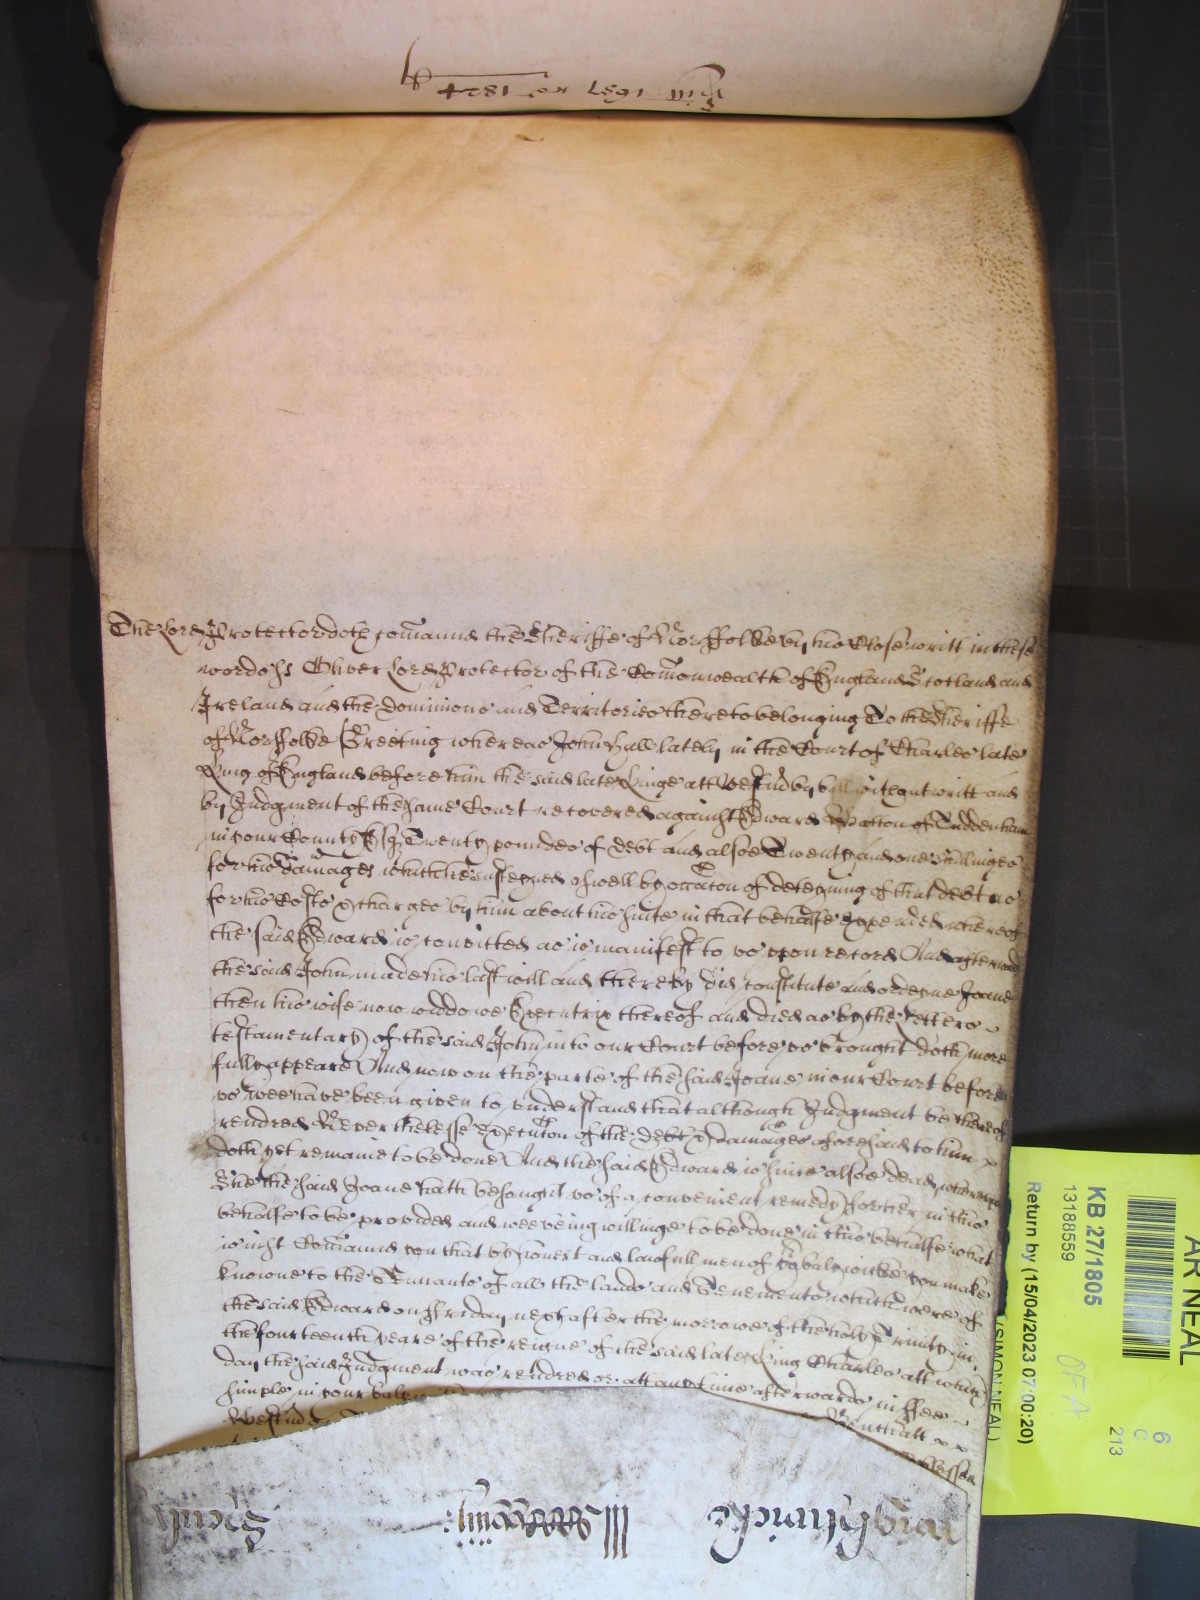 1657 ro 1824
The Lord Protector doth comaund the Sheriffe of Norffolke by his Close writt in these
words ss Oliver Lord Protector of the Comonwealth of England Scotland and
Ireland and the Dominions and Territories thereto belonging To the Sheriffe
of Norffolke Greeting whereas John Hall lately in the Court of Charles late
King of England before him the said late Kinge att Westmr by bill without writt and
by Judgment of the same Court recovered against Edward of Tuddenham
in your County Twenty poundes of debt and alsoe Twenty and one shillinges
for his damages which hee susteyned aswell by occacon of deteyning of that debt as
for his Costs & charges by him about his suite in that behalfe expended whereof
the said Edward is convicted as is manifest to us upon record And afterwards
the said John made his last will and thereby did constitute and ordeyne Joane
then his wife now widdowe Executrix thereof and died as by the Letters
testamentary of the said John into our Court before us brought doth more
fully appeare And now on the parte of the said Joane in our Court before
us wee have been given to understand that although Judgment be thereof
rendred Neverthelesse Execucon of the debt & damages aforesaid to him
doth yet remaine to be done And the said Edward is since alsoe dead whereupon
Shee the said Joane hath besought us of a convenient remedy for her in this
behalfe to be provided and wee being willinge to be done in this behalfe what
is just Comaund you that by honest and lawfull men of yor balywicke you make
knowne to the Tennants of all the lands and Tenements which were of
the said Edward on Friday next after the morrowe of the holy Trinity in
the fourteenth yeare of the reigne of the said late King Charles att which
day the said Judgment was rendred or att any time afterwards in ffee
simple in your baly
Westmr
KB 27/1805
13188559
Return by (15/04/2023 07:00:20)
(SIMON NEAL)
AR NEAL
6
C
213